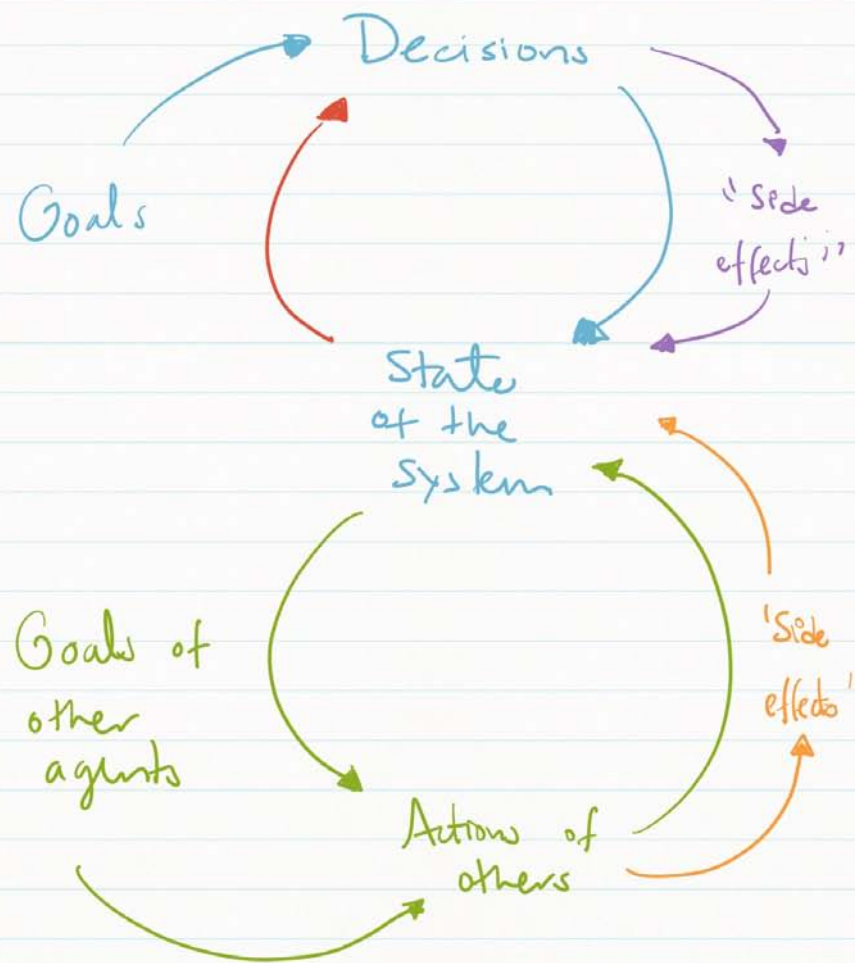 Decisions
Goals
"Side
effects"
State
of the
system
Goals of
other
agents
'Side
effects'
Actions of
others